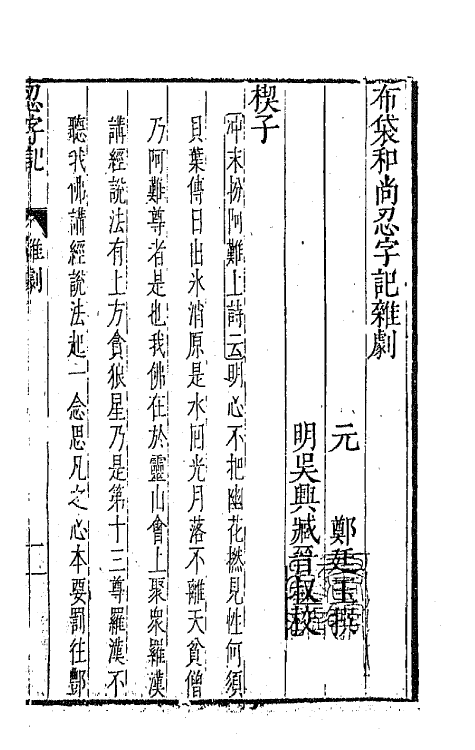 布袋和尚忍字記雜劇
元 鄭廷玉撰
明吳興臧晉叔校
楔子
冲末扮阿難上詩云明心不把幽花撚見性何須
貝葉傳日出氷消原是水囘光月落不離天貧僧
乃阿難尊者是也我佛在於靈山會上聚衆羅漢
講經說法有上方貪狼星乃是第十三尊羅漢不
聽我佛講經說法起一念思凡之心本要罰往酆
忍字記 雜劇 一